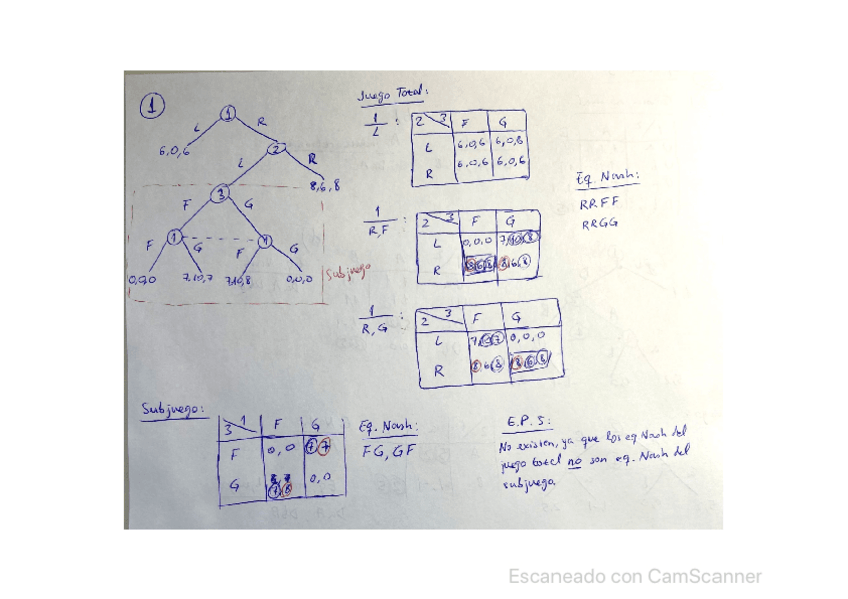 1
1
L R
6,0,6 2
L R
3 8,6,8
F G
1 1
F G F G
0,0,0 7,10,7 7,10,8 0,0,0
Subjuego
Juego Total:
1
L :
2 3 F G
L 6,0,6 6,0,6
R 6,0,6 6,0,6
1
R,F :
2 3 F G
L 0,0,0 7,10,8
R 8,6,8 8,6,8
1
R,G :
2 3 F G
L 7,10,7 0,0,0
R 8,6,8 8,6,8
Eq. Nash:
RRFF
RRGG
Subjuego:
3 1 F G
F 0,0 7,7
G 0,0
Eq. Nash:
FG, GF
E.P.S:
No existen, ya que los eq Nash del
juego total no son eq. Nash del
subjuego.
Escaneado con CamScanner